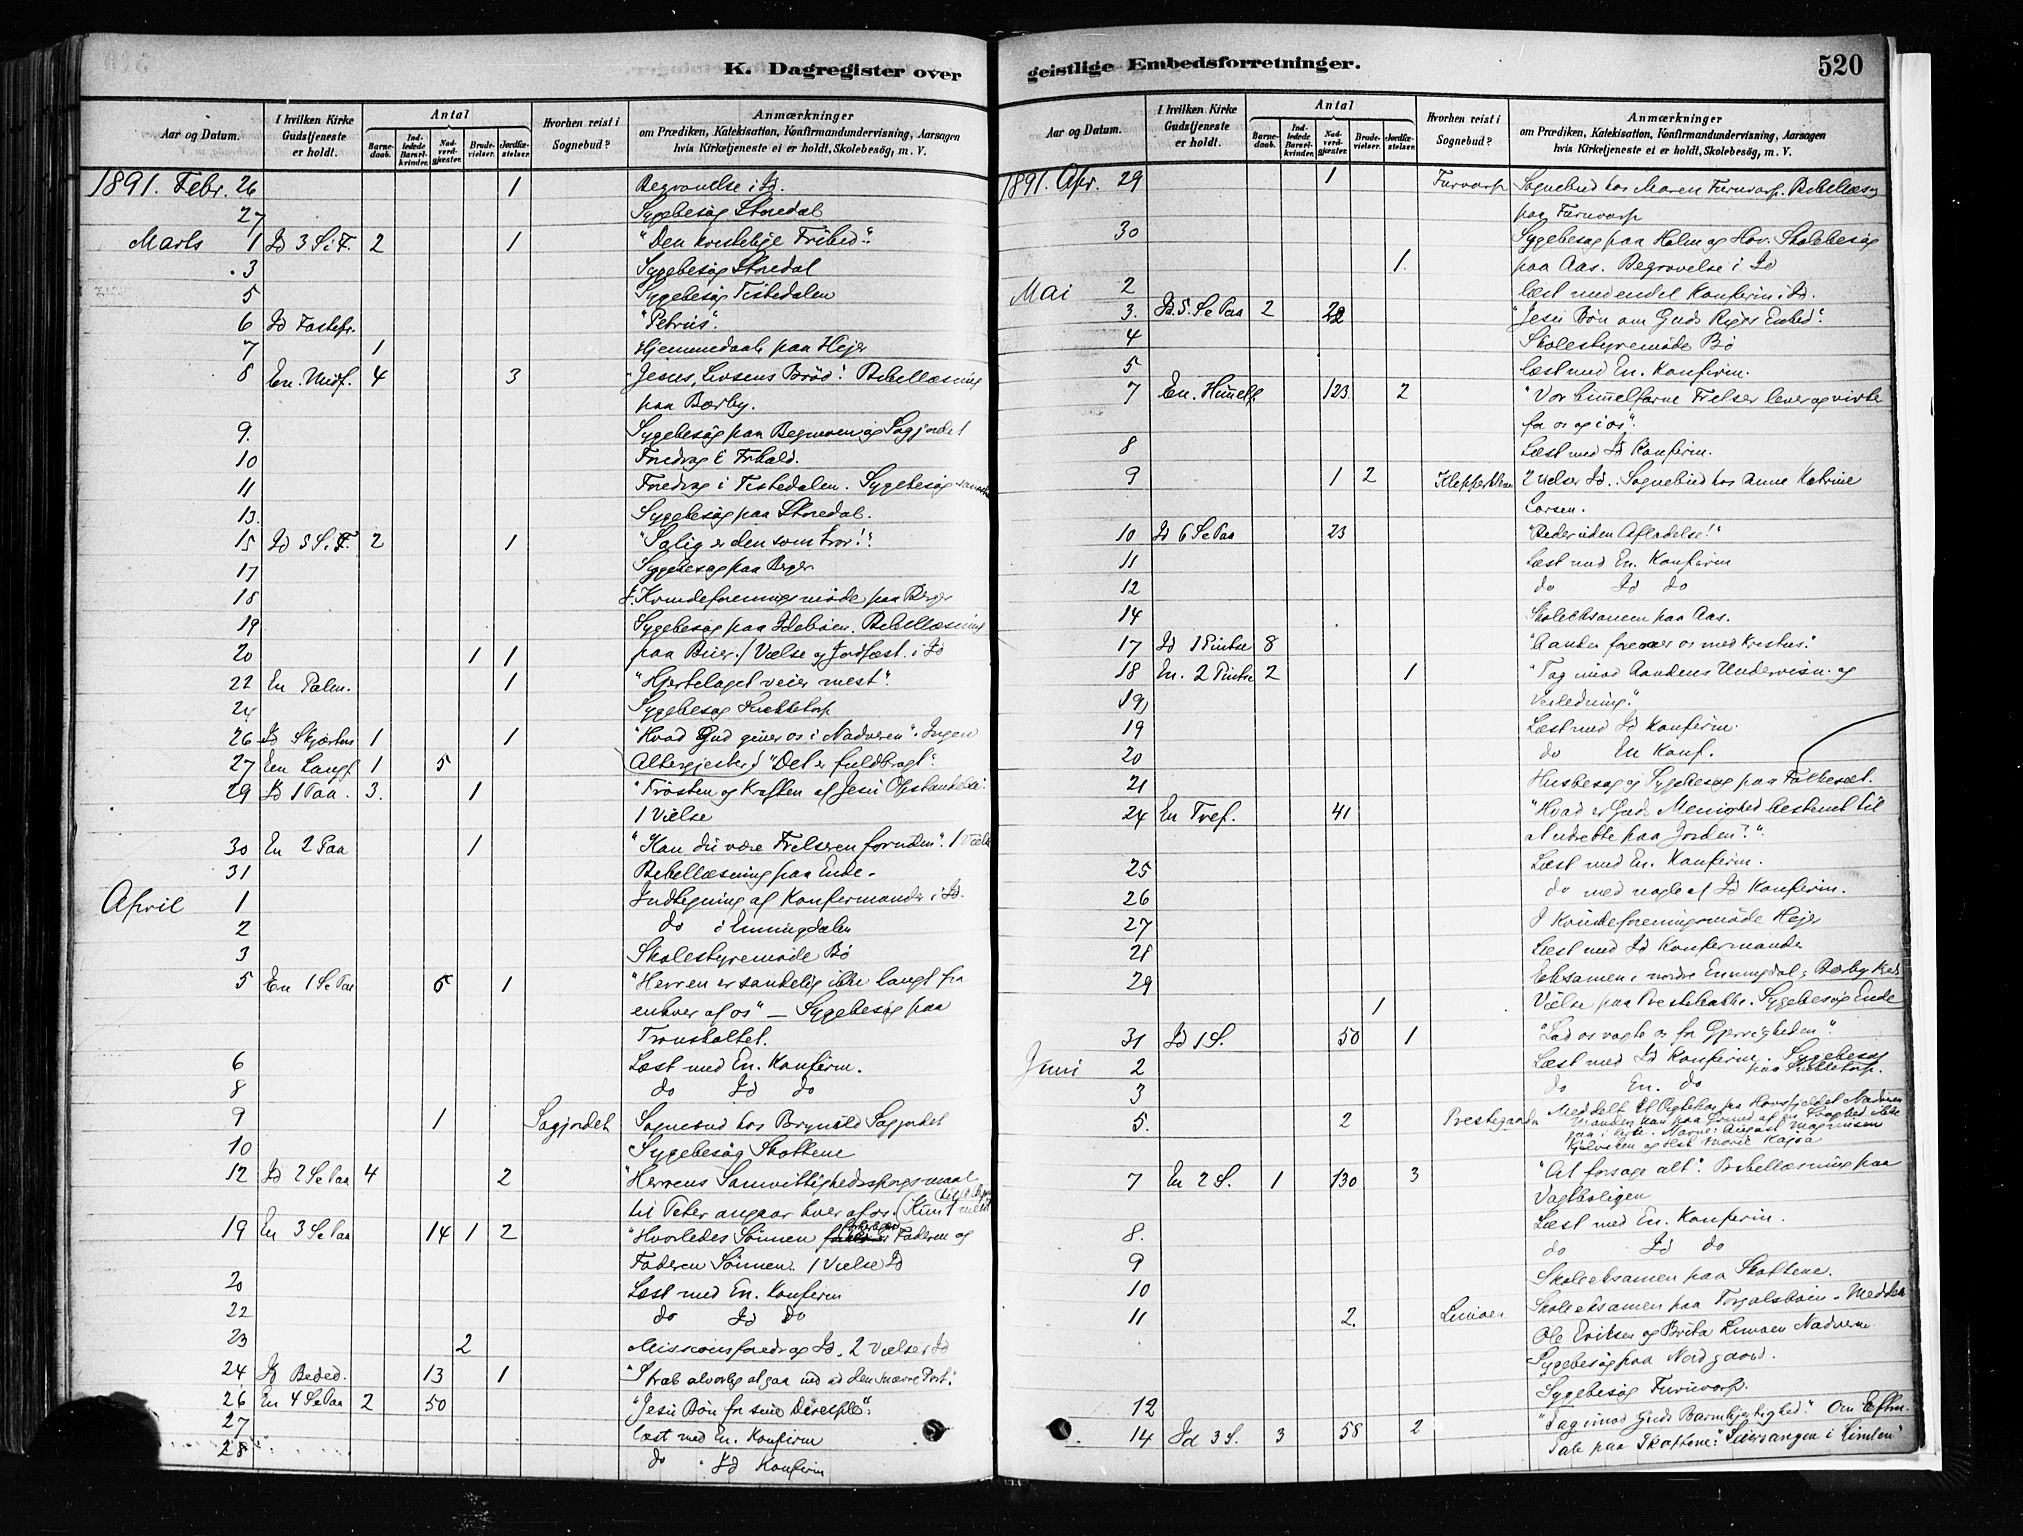 K. Dagregister over
Aar og Datum.
I hvilken Kirke Gudstjeneste er holdt.
Antal
Barnedaab.
Indledede Barselkvinder.
Nadverdgjester.
Brudevielser.
Jordfæstelser.
Hvorhen reist i Sognebud?
Anmærkninger
om Prædiken, Katekisation, Konfirmandundervisning, Aarsagen
hvis Kirketjeneste ei er holdt, Skolebesög, m. V.
1891. Febr. 26 1 Begravelse i Id.
27 Sygebesög Stonedal
Marts 1 Id 3 S i F. 2 1 "Den kristelige Frihed".
3 Sygebesög Stonedal
5 Sygebesög Tistedalen
6 Id Fastepr. "Petrus".
7 1 Hjemmedaab paa Hejer
8 En. Midf. 4 3 "Jesus, Livsens Brød". Bibellæsning
paa Bærby.
9. Sygebesög paa og Sagjordet
10 Foredrag i
11 Foredrag i Tistedalen. Sygebesög
13. Sygebesög paa Stonedal.
15 Id 5 S. i F. 2 1 "Salig er den som tror!".
17 Sygebesøg paa Berger
18 Kvindeforeningsmöde paa Berger
19 Sygebesøg paa Idebøen. Bibellæsning
20 1 1 paa Vielse og Jordfæst. i Id
22 En Palm. 1 "Hjertelaget veier mest".
24 Sygebesøg
26 Id Skjærtors 1 1 "Hvad Gud giver os i Nadveren". Ingen
27 En Langf. 1 5 Altergjester "Det er fuldbragt".
29 Id 1 Paa. 3. 1 "Trösten og Kraften af Jesu Opstandelse".
1 Vielse
30 En 2 Paa 1 "Kan du være Frelseren foruden". 1 Vielse
31 Bibellæsning paa Ende.
April 1 Indtegning af Konfirmander i Id.
2 do i Enningdalen
3 Skolestyremöde Bö
5 En 1 S e Paa 6 1 "Herren er sandelig ikke langt fra
enhver af os" — Sygebesög paa
6 Læst med En. Konfirm.
8 do Id do
9 1 Sagjordet Sognebud hos Brynild Sagjordet
10 Sygebesög Skottene
12 Id 2 S e Paa 4 2 "Herrens Samvittighedsspørgsmaal
til Peter angaar hver af os.
19 En 3 S e Paa 14 1 2 "Hvorledes Sönnen Faderen og
Faderen Sönnen. 1 Vielse Id
20 Læst med En. Konfirm
22 do Id do
23 2 Missionsforedrag Id. 2 Vielser Id
24 Id Beded. 13 1 "Stræb alvorlig at gaa ind ad den snævre Port".
26 En 4 S e Paa 2 50 "Jesu Bön for sine Disciple".
27 Læst med En. Konfirm
28 do Id Konfirm
geistlige Embedsforretninger.
520
Aar og Datum.
I hvilken Kirke Gudstjeneste er holdt.
Antal
Barnedaab.
Indledede Barselkvinder.
Nadverdgjester.
Brudevielser.
Jordfæstelser.
Hvorhen reist i Sognebud?
Anmærkninger
om Prædiken, Katekisation, Konfirmandundervisning, Aarsagen
hvis Kirketjeneste ei er holdt, Skolebesög, m. V.
1891. Apr. 29 1 Furvorp Sognebud hos Maren Furuvorp. Bibellæsn
paa Furuvorp
30 Sygebesøg paa Holm og Hov. Skolebesøg
1. paa Aas. Begravelse i Id
Mai 2 Læst med endel Konfirm. Id.
3. Id. 5. S e Paa 2 22 "Jesu Bön om Guds Riges Enhed".
4 Skolestyremöde Bö
5 Læst med En. Konfirm.
7 En. Himelf 123 2 "Vor himelfarne Frelser lever og virke
for os og i os".
8 Læst med Id Konfirm.
9 1 2 2 Vielser Id. Sognebud hos Anne Katrine
Larsen.
10 Id 6 S e Paa 23 "Beder uden Afladelse!"
11 Læst med En. Konfirm
12 do Id do
14 Skoleeksamen paa Aas.
17 Id 1 Pintse 8 "Aanden forener os med Kristus".
18 En. 2 Pintse 2 1 "Tag imod Aandens Undervisn. og
19) Veiledning".
19 Læst med Id Konfirm.
20 do En Konf.
21 Husbesøg og Sygebesøg paa Folkesæt.
24 En Tref. 41 "Hvad er Guds Menighed bestemt til
at udrette paa Jorden?".
25 Læst med En. Konfirm.
26 do med nogle af Id Konfirm.
27 I Kvindeforeningsmöde Hejer
28 Læst med Id Konfirmander
29 Eksamen i nordre Enningdal, Bærby Kreds
1 Vielse paa Prestebakke. Sygebesög Ende
31 Id 1 S. 50 1 "Lad os vogte os for Gjerrigheden".
Juni 2 Læst med Id Konfirm. Sygebesøg
3 do En. do
5. 2 Prestegaarden Meddelt et Ægtepar fra Hovsfjeldet Nadveren
7 En 2 S. 1 130 3 "At forsage alt". Bibellæsning paa
Vagtboligen
8. Læst med En. Konfirm.
9 do Id do
10 Skoleeksamen paa Skottene.
11 2. Limoen Skoleeksamen paa Torgalsbøen. Meddelt
Ole Eriksen og Brita Limoen Nadveren.
Sygebesög paa Nordgaard.
12 Sygebesøg Furuvorp.
14 Id 3 S. 3 58 2 "Tag imod Guds Barmhjertighed." Om Eftm.
Tale paa Skottene: "Seierssangen i Himlen"